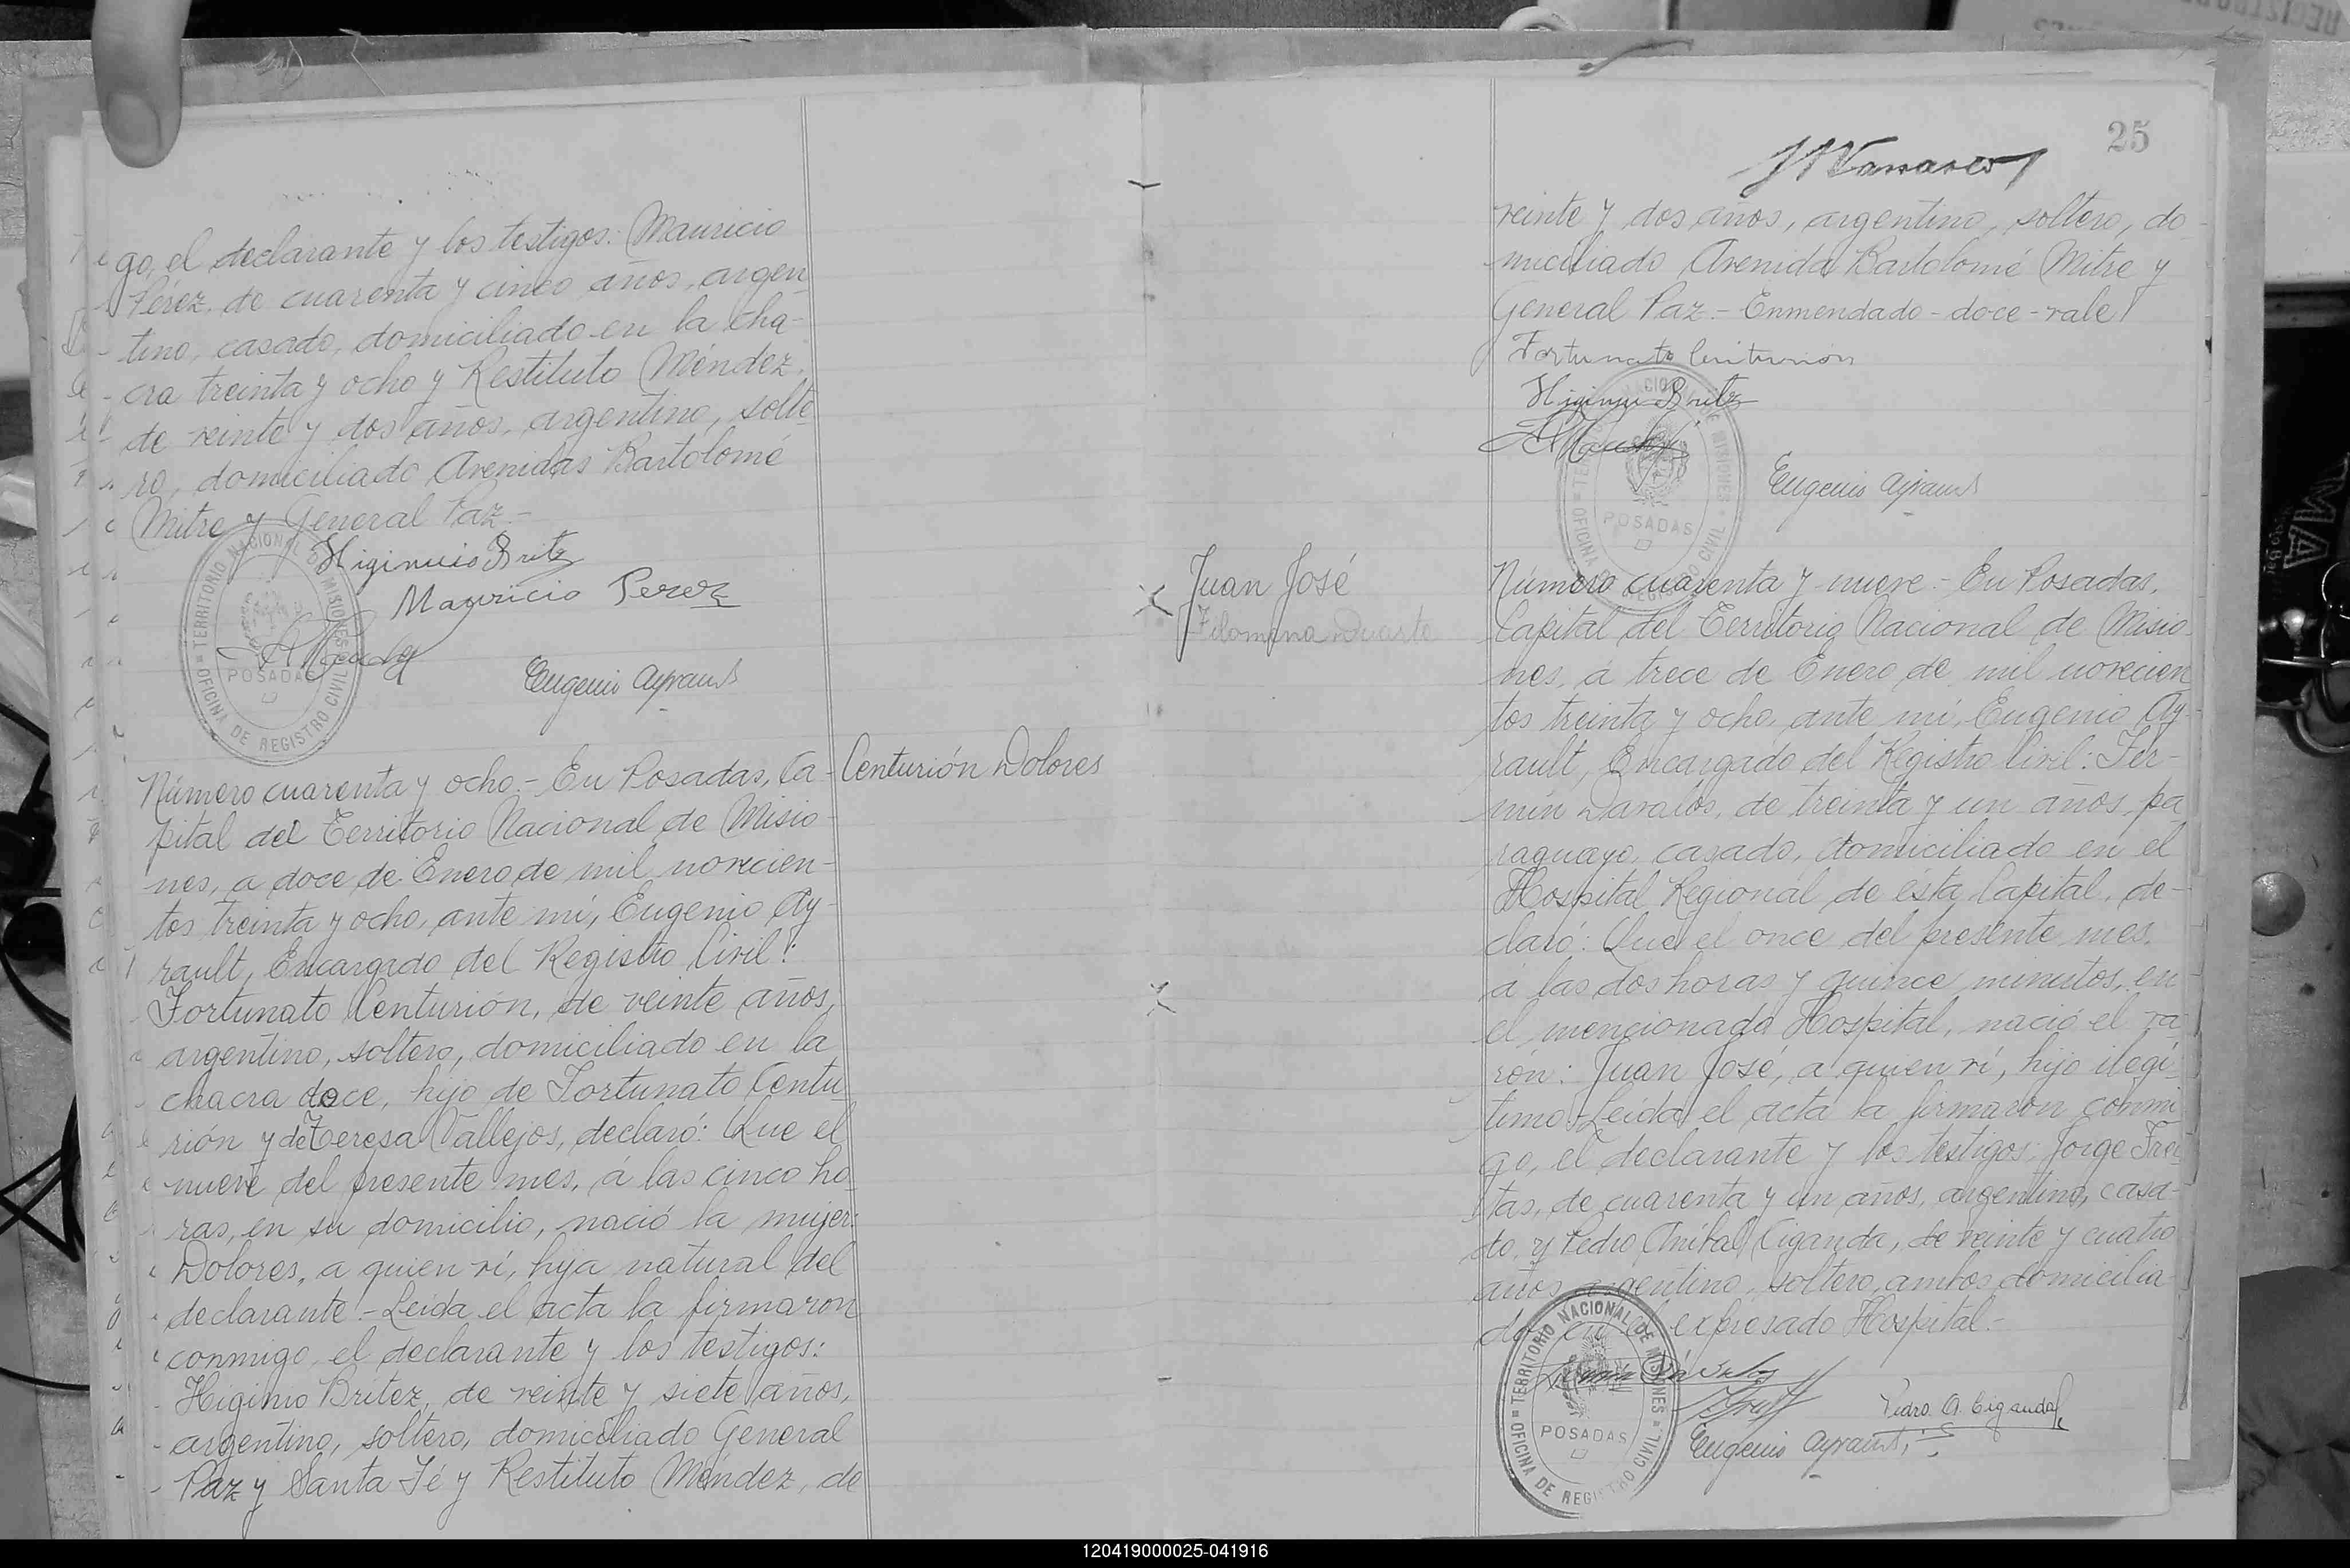 go, el declarante y los testigos: Mauricio
Pérez, de cuarenta y cinco años, argen
tino, casado, domiciliado en la cha-
cra treinta y ocho y Restituto Méndez,
de veinte y dos años, argentino, solte
ro, domiciliado Avenidas Bartolomé
Mitre y General Paz.-
Higinio Britz
Mauricio Perez
RMendez
Eugenio Ayrault
TERRITORIO NACIONAL DE MISIONES
POSADAS
OFICINA DE REGISTRO CIVIL
Centurión Dolores
Número cuarenta y ocho.- En Posadas, Ca-
pital del Territorio Nacional de Misio-
nes, a doce de Enero de mil novecien-
tos treinta y ocho, ante mí, Eugenio Ay-
rault, Encargado del Registro Civil:
Fortunato Centurión, de veinte años,
argentino, soltero, domiciliado en la
chacra doce, hijo de Fortunato Centu
rión y de Teresa Vallejos, declaró: Que el
nueve del presente mes, á las cinco ho
ras, en su domicilio, nació la mujer:
Dolores, a quien ví, hija natural del
declarante.-Leída el acta la firmaron
conmigo, el declarante y los testigos:
Higinio Britez, de veinte y siete años,
argentino, soltero, domiciliado General
Paz y Santa Fé y Restituto Méndez, de
25
veinte y dos años, argentino, soltero, do-
miciliado Avenida Bartolomé Mitre y
General Paz.- Enmendado-doce-vale
Fortunato Centurion
Higinio Britz
RMendez
Eugenio Ayrault
TERRITORIO NACIONAL DE MISIONES
POSADAS
OFICINA DE REGISTRO CIVIL
Juan José
Filomena Duarte
Número cuarenta y nueve.- En Posadas,
Capital del Territorio Nacional de Misio-
nes, á trece de Enero de mil novecien
tos treinta y ocho, ante mí, Eugenio Ay-
rault, Encargado del Registro Civil: Fer-
mín Dávalos, de treinta y un años, pa
raguayo, casado, domiciliado en el
Hospital Regional de ésta Capital, de-
claró: Que el once del presente mes,
á las dos horas y quince minutos, en
el mencionado Hospital, nació el va
rón: Juan José, a quien ví, hijo ilegí-
timo.-Leída el acta la firmaron conmi
go, el declarante y los testigos: Jorge Frei
tas, de cuarenta y un años, argentino, casa-
do, y Pedro Aníbal Ciganda, de veinte y cuatro
años, argentino, soltero, ambos domicilia
dos en el expresado Hospital.-
Fermin Dávalos
Pedro A. Ciganda
Eugenio Ayrault
TERRITORIO NACIONAL DE MISIONES
POSADAS
OFICINA DE REGISTRO CIVIL
120419000025-041916